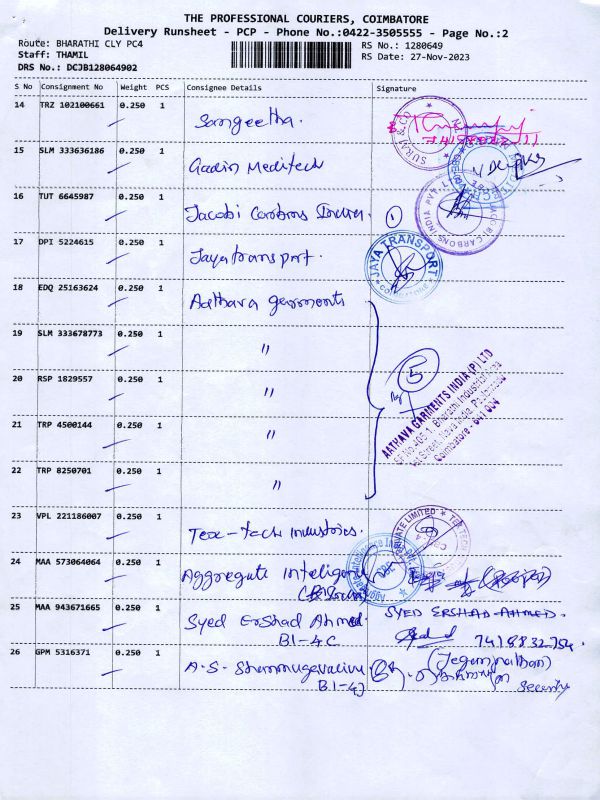 THE PROFESSIONAL COURIERS, COIMBATORE
Delivery Runsheet - PCP - Phone No.:0422-3505555 - Page No.:2
Route: BHARATHI CLY PC4
RS No.: 1280649
Staff: THAMIL
RS Date: 27-Nov-2023
DRS No.: DCJB128064902
S No Consignment No Weight PCS Consignee Details Signature
14 TRZ 102100661 0.250 1 Sangeetha.
SURAJ & CO
15 SLM 333636186 0.250 1 Meditech
16 TUT 6645987 0.250 1 Jacobi Carbons India. 1
CARBONS INDIA PVT. LTD
17 DPI 5224615 0.250 1 Jayatransport.
JAYA TRANSPORT
COIMBATORE
18 EDQ 25163624 0.250 1 Aathava garments
19 SLM 333678773 0.250 1 "
20 RSP 1829557 0.250 1 "
5
AATHAVA GARMENTS INDIA (P) LTD
Coimbatore - 641 004
21 TRP 4500144 0.250 1 "
22 TRP 8250701 0.250 1 "
23 VPL 221186007 0.250 1 Tex-tech Industries.
PRIVATE LIMITED
24 MAA 573064064 0.250 1 Aggregate Inteligence
25 MAA 943671665 0.250 1 Syed Ershad Ahmed. SYED ERSHAD AHMED.
B1-4C 7418832754
26 GPM 5316371 0.250 1 A.S. Shanmugavadivu (Jeganathan)
B1-4J Security